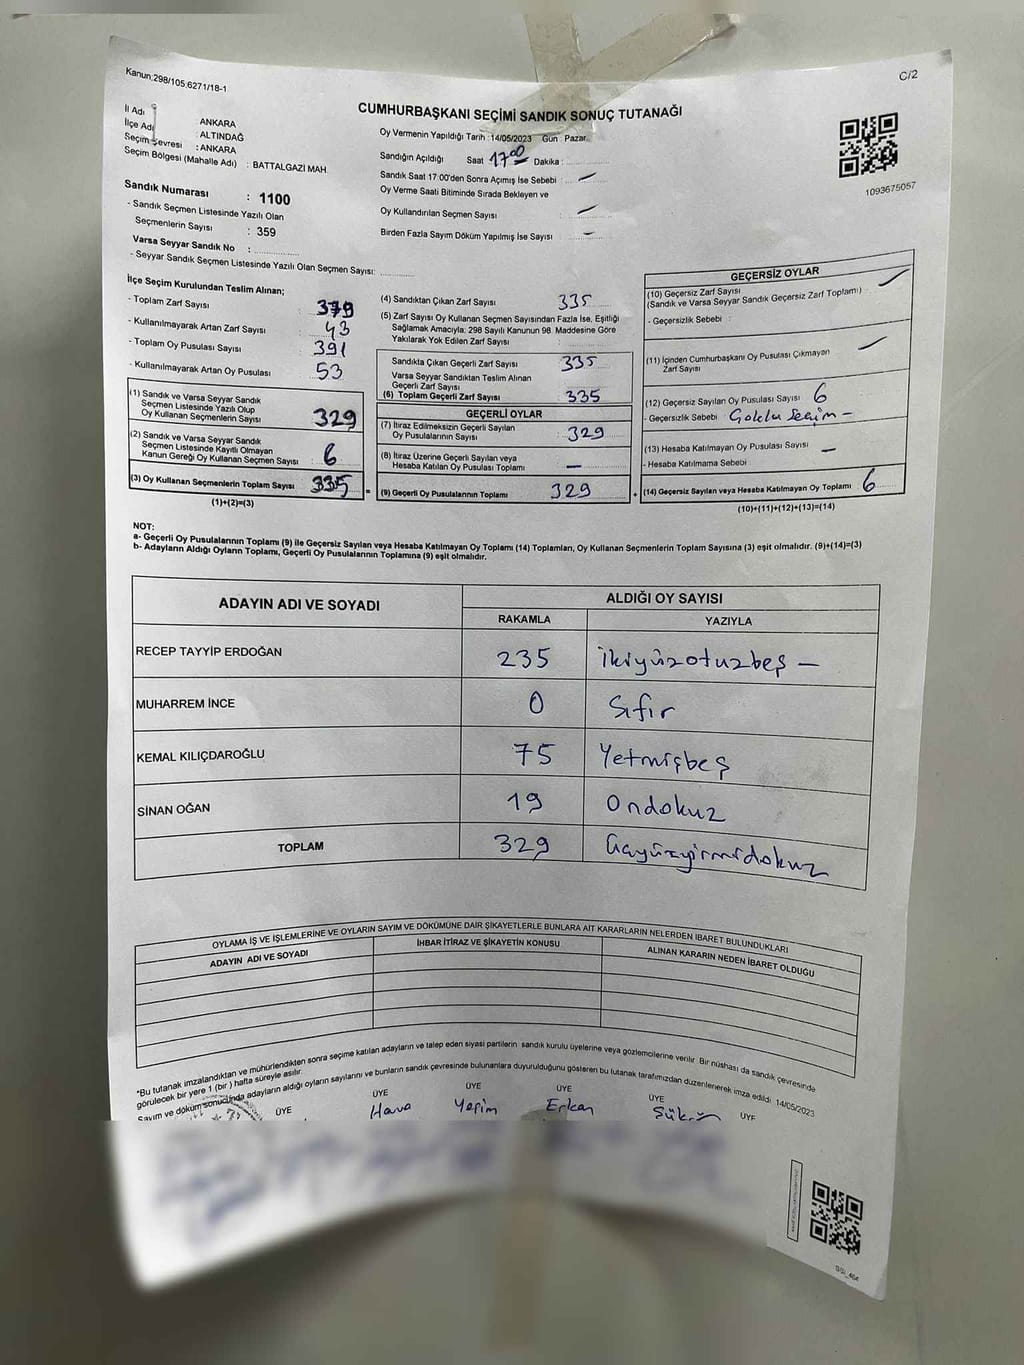 Kanun:298/105,6271/18-1
C/2
CUMHURBAŞKANI SEÇİMİ SANDIK SONUÇ TUTANAĞI
İl Adı : ANKARA
İlçe Adı : ALTINDAĞ
Seçim Çevresi : ANKARA
Seçim Bölgesi (Mahalle Adı) : BATTALGAZİ MAH
Oy Vermenin Yapıldığı Tarih :14/05/2023 Gün : Pazar
Sandığın Açıldığı Saat 17 00 Dakika :
Sandık Saat 17:00'den Sonra Açımış İse Sebebi : —
Oy Verme Saati Bitiminde Sırada Bekleyen ve
Oy Kullandırılan Seçmen Sayısı : —
Birden Fazla Sayım Döküm Yapılmış İse Sayısı : —
1093675057
Sandık Numarası : 1100
- Sandık Seçmen Listesinde Yazılı Olan
Seçmenlerin Sayısı : 359
Varsa Seyyar Sandık No :
- Seyyar Sandık Seçmen Listesinde Yazılı Olan Seçmen Sayısı:
İlçe Seçim Kurulundan Teslim Alınan;
- Toplam Zarf Sayısı
- Kullanılmayarak Artan Zarf Sayısı 43
- Toplam Oy Pusulası Sayısı 391
- Kullanılmayarak Artan Oy Pusulası 53
(1) Sandık ve Varsa Seyyar Sandık
Seçmen Listesinde Yazılı Olup
Oy Kullanan Seçmenlerin Sayısı 329
(2) Sandık ve Varsa Seyyar Sandık
Seçmen Listesinde Kayıtlı Olmayan
Kanun Gereği Oy Kullanan Seçmen Sayısı 6
(3) Oy Kullanan Seçmenlerin Toplam Sayısı 335
(1)+(2)=(3)
(4) Sandıktan Çıkan Zarf Sayısı 335
(5) Zarf Sayısı Oy Kullanan Seçmen Sayısından Fazla İse, Eşitliği
Sağlamak Amacıyla; 298 Sayılı Kanunun 98. Maddesine Göre
Yakılarak Yok Edilen Zarf Sayısı
Sandıkta Çıkan Geçerli Zarf Sayısı 335
Varsa Seyyar Sandıktan Teslim Alınan
Geçerli Zarf Sayısı
(6) Toplam Geçerli Zarf Sayısı 335
GEÇERLİ OYLAR
(7) İtiraz Edilmeksizin Geçerli Sayılan
Oy Pusulalarının Sayısı 329
(8) İtiraz Üzerine Geçerli Sayılan veya
Hesaba Katılan Oy Pusulası Toplamı —
= (9) Geçerli Oy Pusulalarının Toplamı 329
GEÇERSİZ OYLAR
(10) Geçersiz Zarf Sayısı
(Sandık ve Varsa Seyyar Sandık Geçersiz Zarf Toplamı) —
- Geçersizlik Sebebi :
(11) İçinden Cumhurbaşkanı Oy Pusulası Çıkmayan
Zarf Sayısı —
(12) Geçersiz Sayılan Oy Pusulası Sayısı 6
- Geçersizlik Sebebi Çoklu Seçim —
(13) Hesaba Katılmayan Oy Pusulası Sayısı —
- Hesaba Katılmama Sebebi
+ (14) Geçersiz Sayılan veya Hesaba Katılmayan Oy Toplamı 6
(10)+(11)+(12)+(13)=(14)
NOT:
a- Geçerli Oy Pusulalarının Toplamı (9) ile Geçersiz Sayılan veya Hesaba Katılmayan Oy Toplamı (14) Toplamları, Oy Kullanan Seçmenlerin Toplam Sayısına (3) eşit olmalıdır. (9)+(14)=(3)
b- Adayların Aldığı Oyların Toplamı, Geçerli Oy Pusulalarının Toplamına (9) eşit olmalıdır.
ADAYIN ADI VE SOYADI ALDIĞI OY SAYISI
RAKAMLA YAZIYLA
RECEP TAYYİP ERDOĞAN 235 İkiyüzotuzbeş —
MUHARREM İNCE 0 Sıfır
KEMAL KILIÇDAROĞLU 75 Yetmişbeş
SİNAN OĞAN 19 Ondokuz
TOPLAM 329 üçyüzyirmidokuz
OYLAMA İŞ VE İŞLEMLERİNE VE OYLARIN SAYIM VE DÖKÜMÜNE DAİR ŞİKAYETLERLE BUNLARA AİT KARARLARIN NELERDEN İBARET BULUNDUKLARI
ADAYIN ADI VE SOYADI İHBAR İTİRAZ VE ŞİKAYETİN KONUSU ALINAN KARARIN NEDEN İBARET OLDUĞU
*Bu tutanak imzalandıktan ve mühürlendikten sonra seçime katılan adayların ve talep eden siyasi partilerin sandık kurulu üyelerine veya gözlemcilerine verilir. Bir nüshası da sandık çevresinde
görülecek bir yere 1 (bir) hafta süreyle asılır.
Sayım ve döküm sonucunda adayların aldığı oyların sayılarını ve bunların sandık çevresinde bulunanlara duyurulduğunu gösteren bu tutanak tarafımızdan düzenlenerek imza edildi. 14/05/2023
ÜYE ÜYE ÜYE ÜYE ÜYE ÜYE
Hava Yeşim Erkan Şükrü